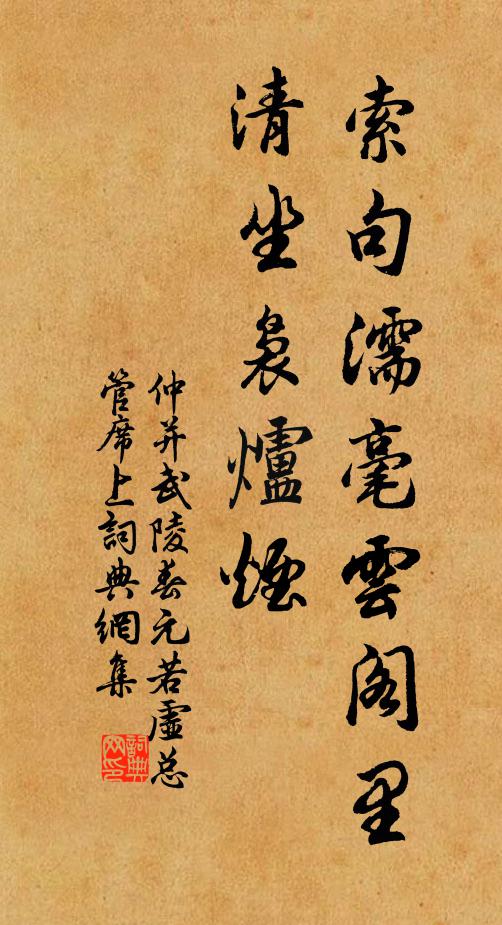 索句濡毫雲阁里
清坐裊爐煙
仲并武陵春元若虛总
管席上詞典網集
詞典
网印